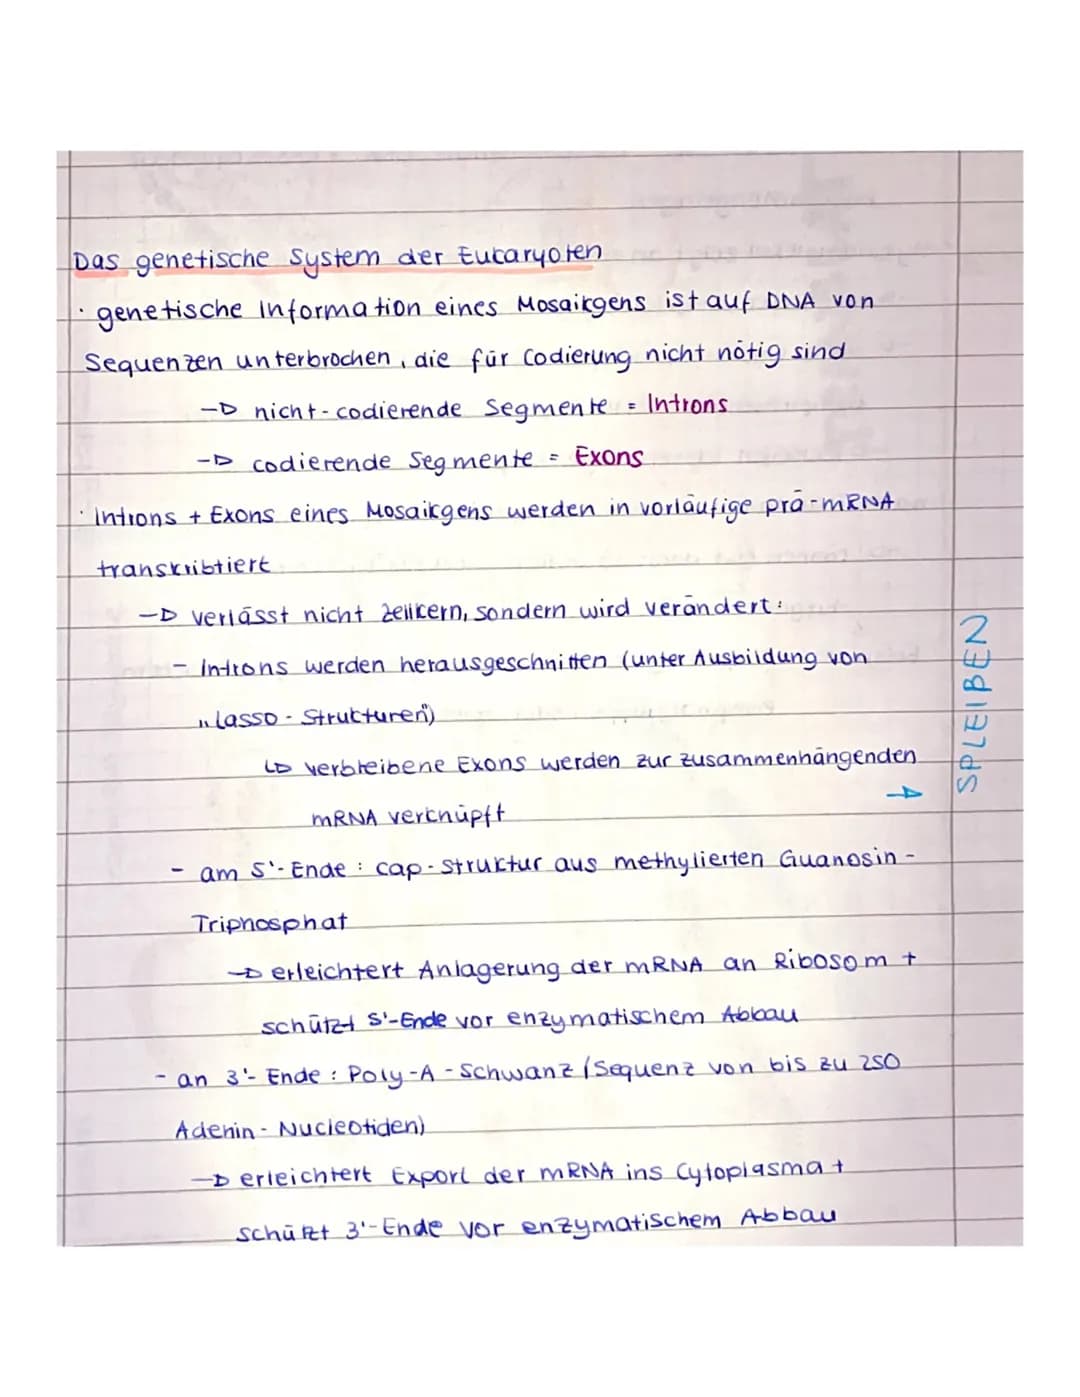 Das genetische System der Eucaryoten
· genetische Information eines Mosaikgens ist auf DNA von
Sequenzen unterbrochen, die für Codierung nicht nötig sind
→ nicht-codierende Segmente = Introns
→ codierende Segmente = Exons
· Introns + Exons eines Mosaikgens werden in vorläufige prä-mRNA
transkribtiert
→ verlässt nicht Zellkern, sondern wird verändert:
- Introns werden herausgeschnitten (unter Ausbildung von
„Lasso-Strukturen")
↳ verbleibene Exons werden zur zusammenhängenden
mRNA verknüpft
→ SPLEIßEN
- am 5'-Ende : cap-Struktur aus methylierten Guanosin-
Triphosphat
→ erleichtert Anlagerung der mRNA an Ribosom +
schützt 5'-Ende vor enzymatischem Abbau
- an 3'-Ende : Poly-A-Schwanz (Sequenz von bis zu 250
Adenin-Nucleotiden)
→ erleichtert Export der mRNA ins Cytoplasma +
schützt 3'-Ende vor enzymatischem Abbau